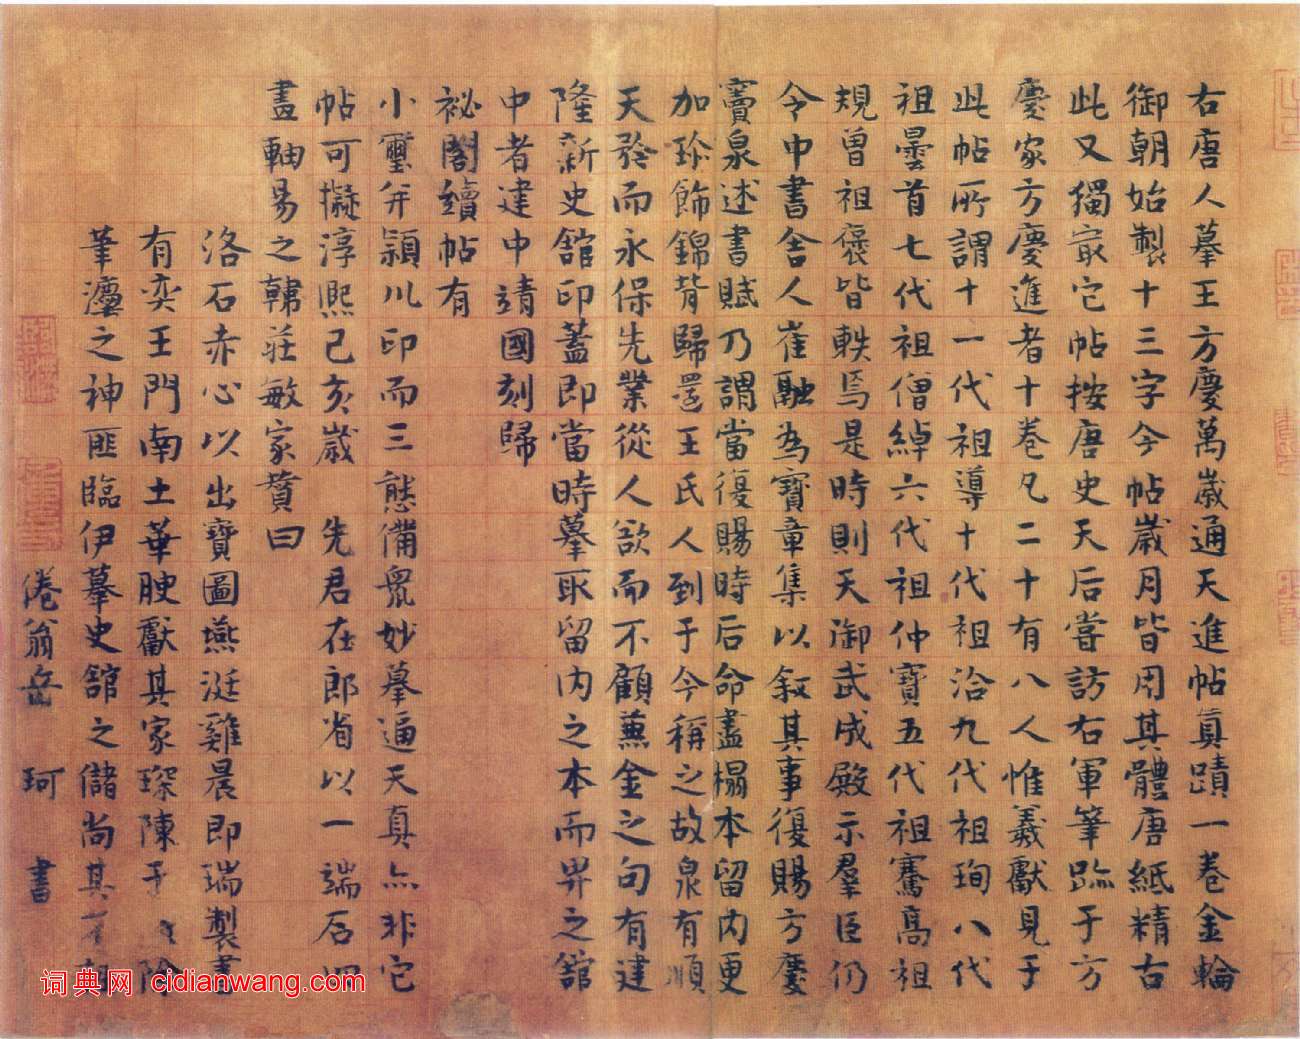 右唐人摹王方慶萬歲通天進帖真蹟一卷金輪
御朝始製十三字今帖歲月皆用其體唐紙精古
此又獨冣它帖按唐史天后嘗訪右軍筆跡于方
慶家方慶進者十卷凡二十有八人惟羲獻見于
此帖所謂十一代祖導十代祖洽九代祖珣八代
祖曇首七代祖僧綽六代祖仲寶五代祖騫高祖
規曾祖褒皆軼焉是時則天御武成殿示羣臣仍
令中書舍人崔融為寶章集以敘其事復賜方慶
竇泉述書賦乃謂當復賜時后命盡榻本留內更
加珍飾錦背歸還王氏人到于今稱之故泉有順
天矜而永保先業從人欲而不顧兼金之句有建
隆新史館印蓋即當時摹取留內之本而畀之館
中者建中靖國刻歸
祕閣續帖有
小璽并潁川印而三態備眾妙摹逼天真亦非它
帖可擬淳熙己亥歲 先君在郎省以一端石四
畫軸易之韓莊敏家贊曰
洛石赤心以出寶圖燕涏雞晨即瑞製書
有奕王門南土華腴獻其家琛陳于 除
筆灋之神匪臨伊摹史館之儲尚其
倦翁岳 珂 書
词典网 cidianwang.com